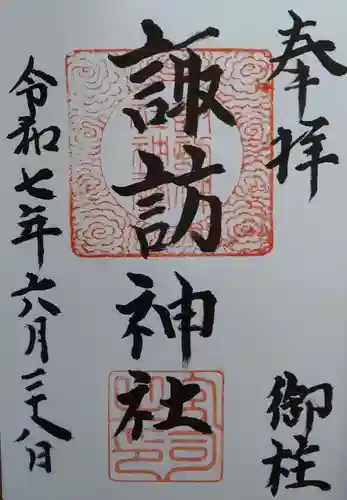 奉拝
御柱
諏訪神社
令和七年六月二十八日